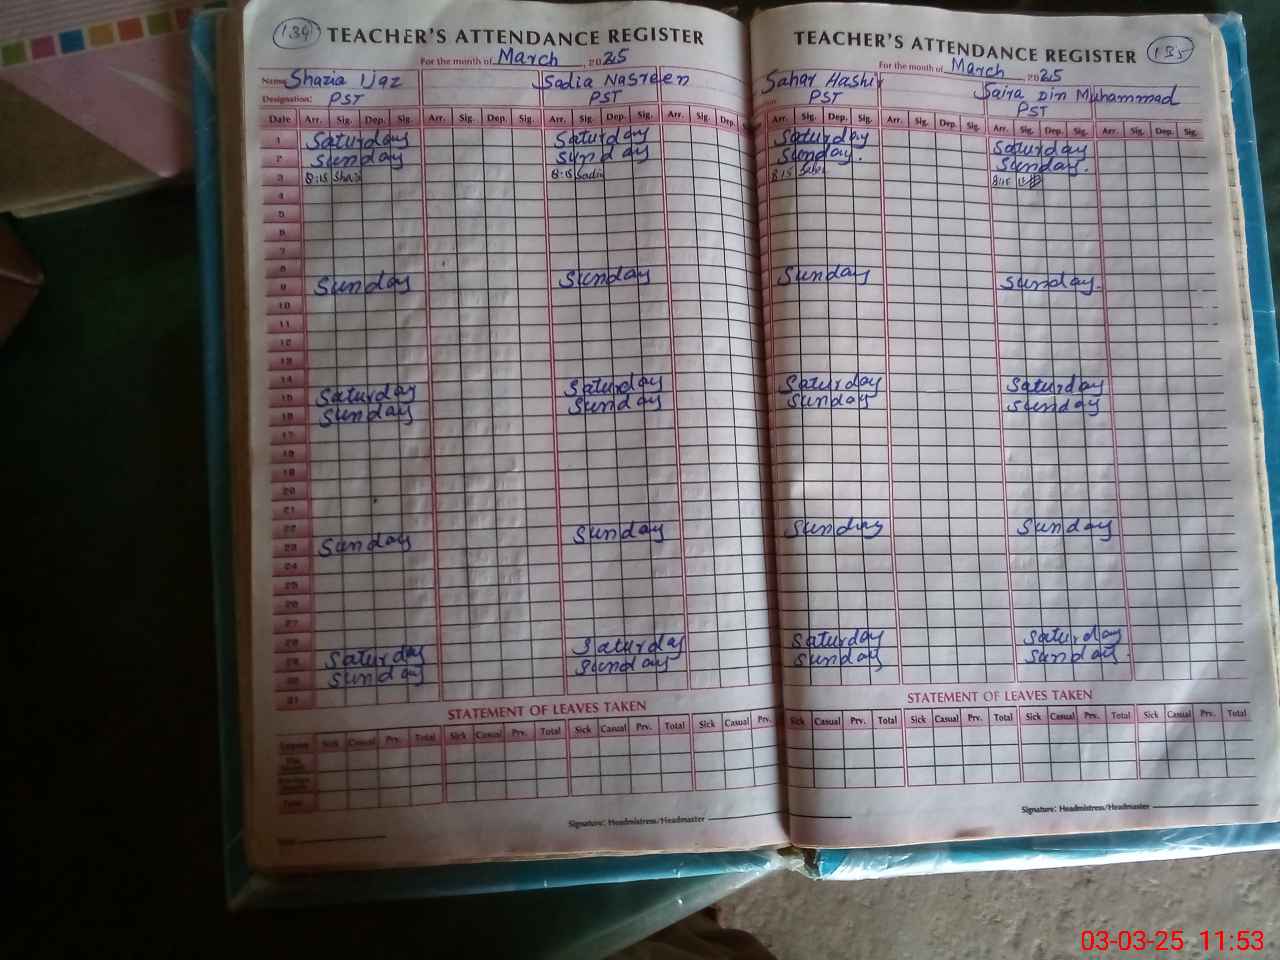 134 TEACHER'S ATTENDANCE REGISTER
For the month of March, 2025
Name Shazia Ijaz Sadia Nasreen
Designation: PST PST
Date Arr. Sig. Dep. Sig. Arr. Sig. Dep. Sig. Arr. Sig. Dep. Sig. Arr. Sig. Dep.
1 Saturday Saturday
2 Sunday Sunday
3 8:15 Shazi 8:15 Sadia
4
5
6
7
8
9 Sunday Sunday
10
11
12
13
14
15 Saturday Saturday
16 Sunday Sunday
17
18
19
20
21
22
23 Sunday Sunday
24
25
26
27
28
29 Saturday Saturday
30 Sunday Sunday
31
STATEMENT OF LEAVES TAKEN
Leaves Sick Casual Prv. Total Sick Casual Prv. Total Sick Casual Prv. Total Sick Casual Prv.
Total
Signature: Headmistress/Headmaster
TEACHER'S ATTENDANCE REGISTER 135
For the month of March, 2025
Sahar Hashi Saira Din Muhammad
PST PST
Arr. Sig. Dep. Sig. Arr. Sig. Dep. Sig. Arr. Sig. Dep. Sig. Arr. Sig. Dep. Sig.
Saturday Saturday
Sunday. Sunday.
8:15 8:15
Sunday Sunday.
Saturday Saturday
Sunday Sunday
Sunday Sunday
Saturday Saturday
Sunday Sunday.
STATEMENT OF LEAVES TAKEN
Sick Casual Prv. Total Sick Casual Prv. Total Sick Casual Prv. Total Sick Casual Prv. Total
Signature: Headmistress/Headmaster
03-03-25 11:53